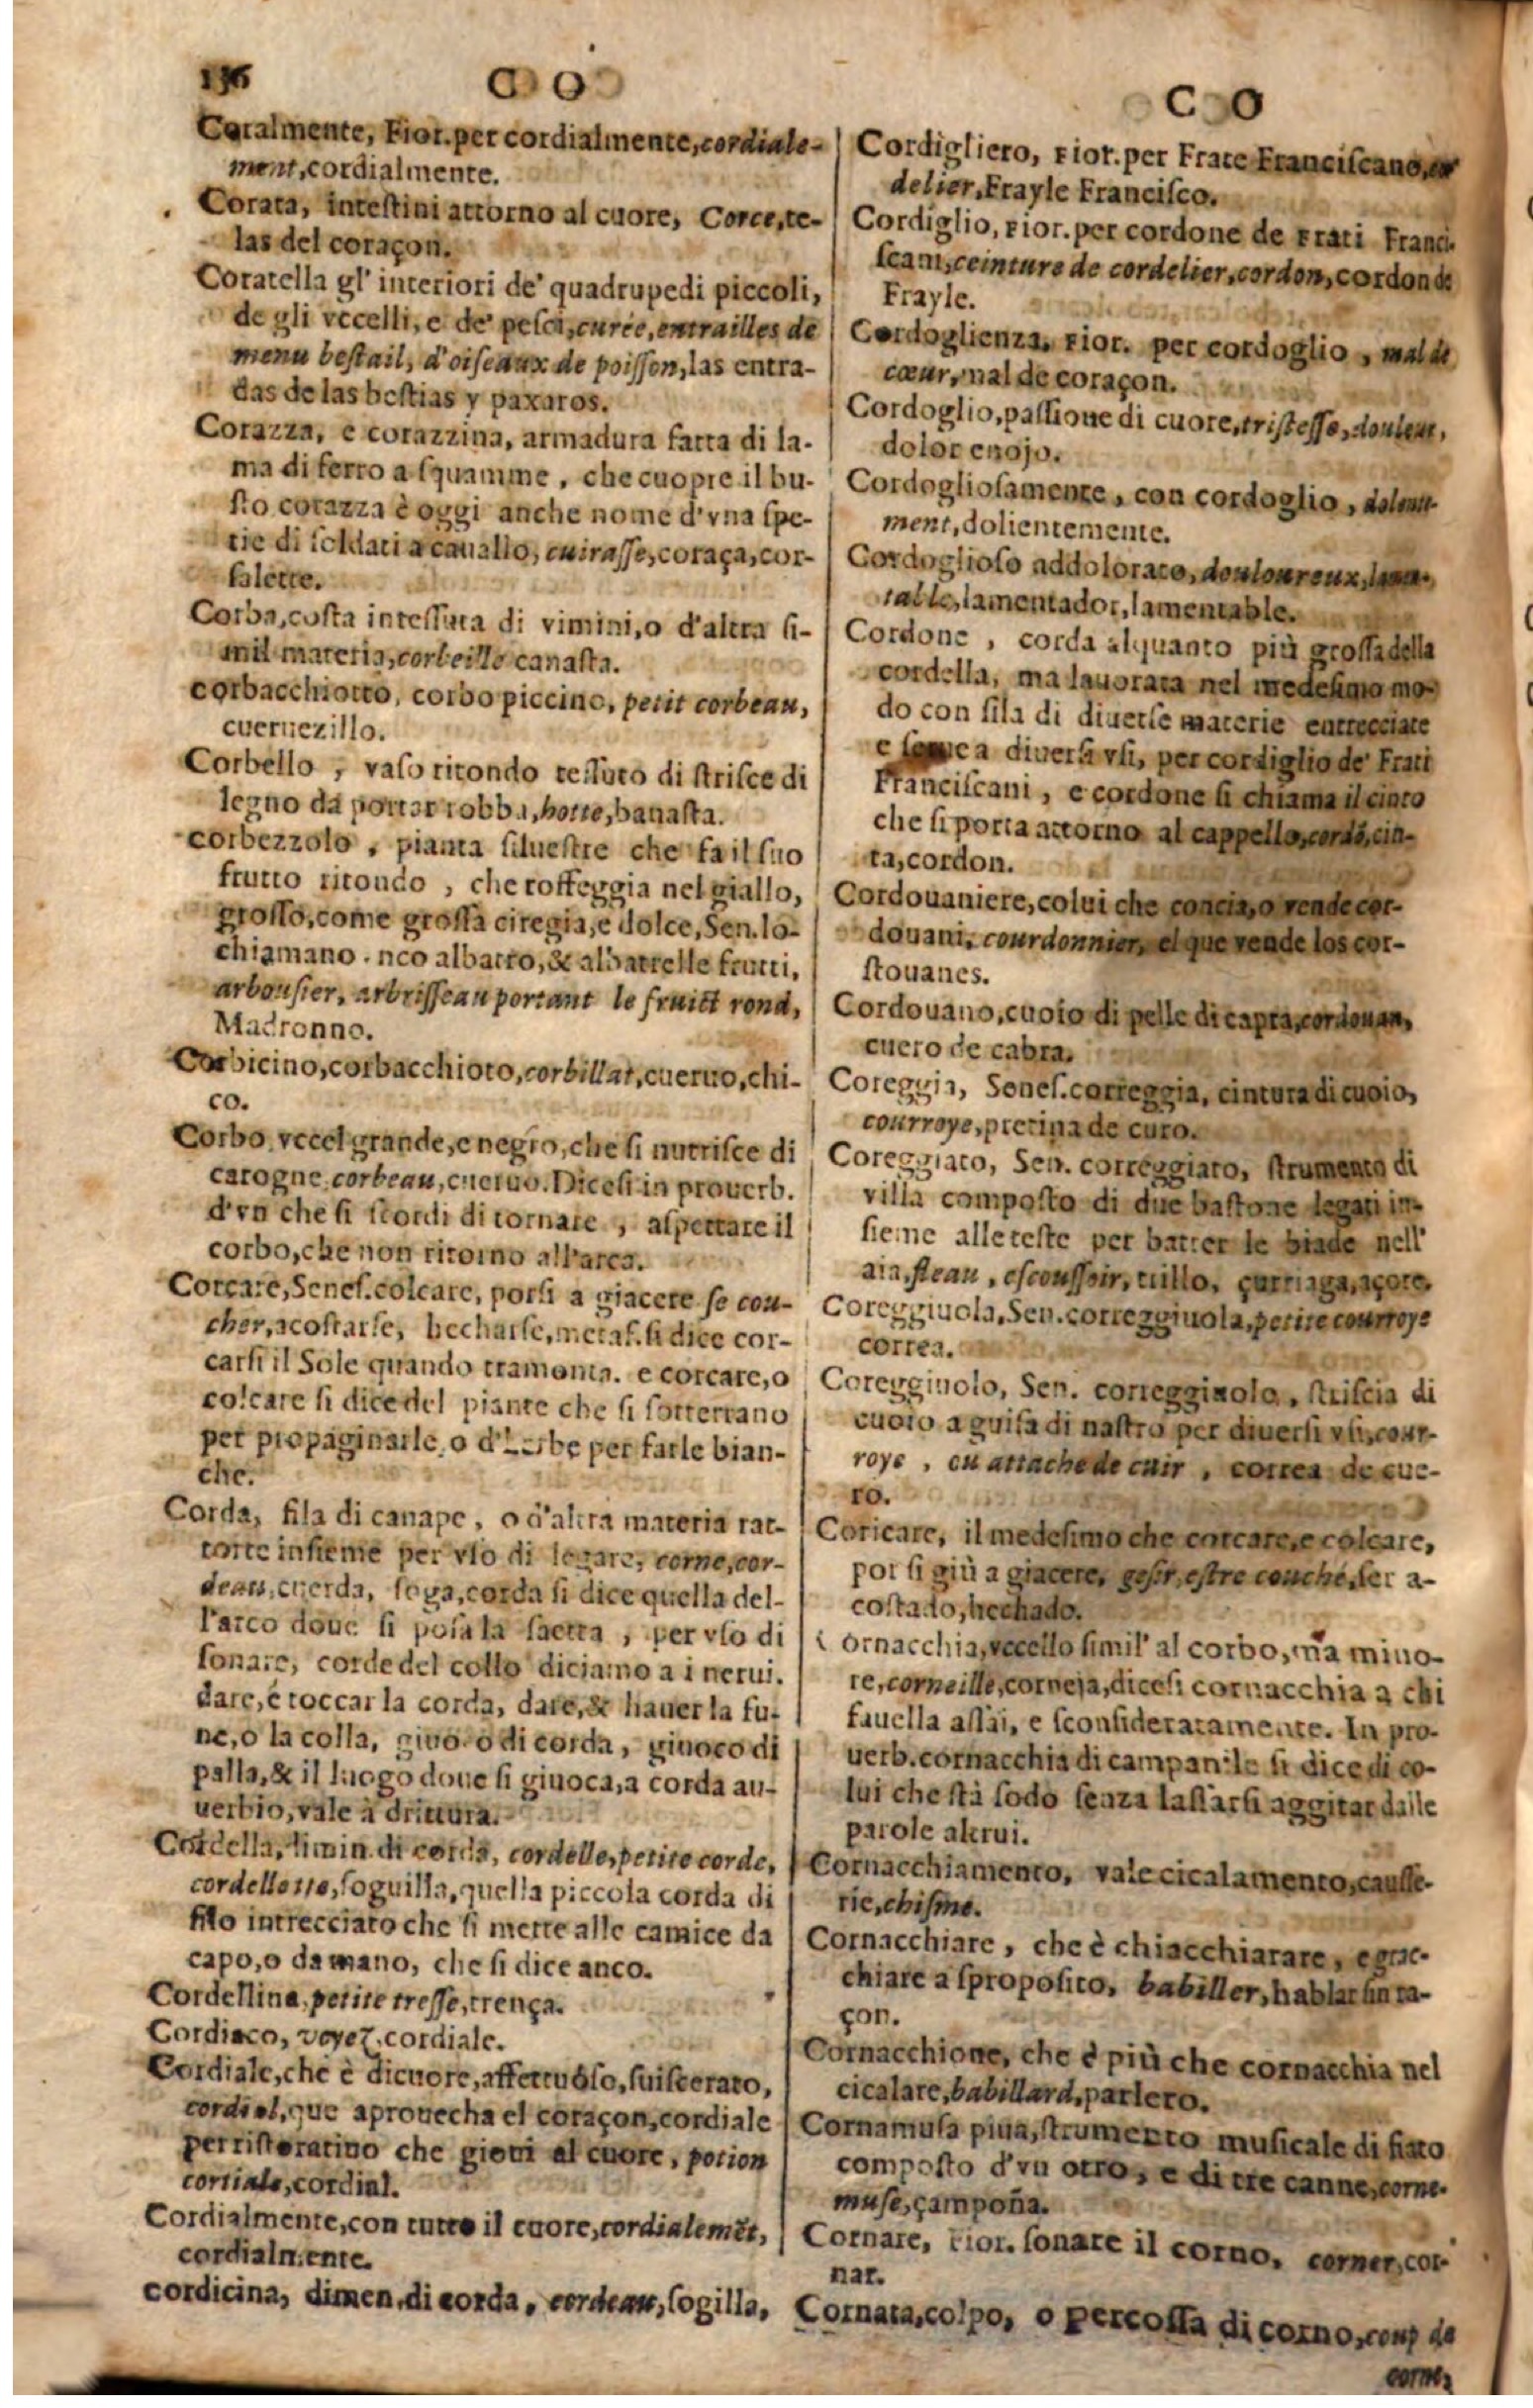 136
C O
Coralmente, Fior. per cordialmente, cordiale-
ment, cordialmente.
Corata, inteſtini attorno al cuore, Coree, te-
las del coraçon.
Coratella gl' interiori de' quadrupedi piccoli,
de gli vccelli, e de' peſci, curée, entrailles de
menu beſtail, d'oiſeaux de poiſſon, las entra-
das de las beſtias y paxaros.
Corazza, e corazzina, armadura fatta di la-
ma di ferro a ſquamme, che cuopre il bu-
ſto corazza è oggi anche nome d'vna ſpe-
tie di ſoldati a cauallo, cuiraſſe, coraça, cor-
ſalette.
Corba, coſta inteſſuta di vimini, o d'altra ſi-
mil materia, corbeille canaſta.
corbacchiotto, corbo piccino, petit corbeau,
cueruezillo.
Corbello, vaſo ritondo teſſuto di ſtriſce di
legno da portar robba, hotte, banaſta.
corbezzolo, pianta ſilueſtre che fa il ſuo
frutto ritondo, che roſſeggia nel giallo,
groſſo, come groſſa ciregia, e dolce, Sen. lo-
chiamano. nco albatro, & albatrelle frutti,
arbouſier, arbriſſeau portant le fruict rond,
Madronno.
Corbicino, corbacchioto, corbillat, cueruo, chi-
co.
Corbo, vccel grande, e negro, che ſi nutriſce di
carogne, corbeau, cueruo. Diceſi in prouerb.
d'vn che ſi ſcordi di tornare, aſpettare il
corbo, che non ritorno all'arca.
Corcare, Seneſ. colcare, porſi a giacere ſe cou-
cher, acoſtarſe, hecharſe, metaf. ſi dice cor-
carſi il Sole quando tramonta. e corcare, o
colcare ſi dice del piante che ſi ſotterrano
per propaginarle, o d'Erbe per farle bian-
che.
Corda, fila di canape, o d'altra materia rat-
torte inſieme per vſo di legare, corne, cor-
deau, cuerda, ſoga, corda ſi dice quella del-
l'arco doue ſi poſa la ſaetta, per vſo di
ſonare, corde del collo diciamo a i nerui.
dare, è toccar la corda, dare, & hauer la fu-
ne, o la colla, giuo. o di corda, giuoco di
palla, & il luogo doue ſi giuoca, a corda au-
uerbio, vale à drittura.
Cordella, dimin. di corda, cordelle, petite corde,
cordellette, ſoguilla, quella piccola corda di
filo intrecciato che ſi mette alle camice da
capo, o da mano, che ſi dice anco.
Cordellina, petite treſſe, trença.
Cordiaco, voyeʒ, cordiale.
Cordiale, che è di cuore, affettuoſo, ſuiſcerato,
cordial, que aprouecha el coraçon, cordiale
per riſtoratiuo che gioui al cuore, potion
cortiale, cordial.
Cordialmente, con tutto il cuore, cordialemẽt,
cordialmente.
cordicina, dimen. di corda, cordeau, ſogilla,
C O
Cordigliero, Fior. per Frate Franciſcano, cor
delier, Frayle Franciſco.
Cordiglio, Fior. per cordone de Frati Franci-
ſcani, ceinture de cordelier, cordon, cordon de
Frayle.
Cordoglienza, Fior. per cordoglio, mal de
cœur, mal de coraçon.
Cordoglio, paſſione di cuore, triſteſſe, douleur,
dolor enojo.
Cordoglioſamente, con cordoglio, dolente-
ment, dolientemente.
Cordoglioſo addolorato, douloureux, lamen-
table, lamentador, lamentable.
Cordone, corda alquanto più groſſa della
cordella, ma lauorata nel medeſimo mo-
do con fila di diuerſe materie entrecciate
e ſerue a diuerſi vſi, per cordiglio de' Frati
Franciſcani, e cordone ſi chiama il cinto
che ſi porta attorno al cappello, cordõ, cin-
ta, cordon.
Cordouaniere, colui che concia, o vende cor-
douani, courdonnier, el que vende los cor-
ſtouanes.
Cordouano, cuoio di pelle di capra, cordouan,
cuero de cabra.
Coreggia, Seneſ. correggia, cintura di cuoio,
courroye, pretina de curo.
Coreggiato, Sen. correggiato, ſtrumento di
villa compoſto di due baſtone legati in-
ſieme alle teſte per batter le biade nell'
aia, fleau, eſcouſſoir, trillo, çurriaga, açote.
Coreggiuola, Sen. correggiuola, petite courroye
correa.
Coreggiuolo, Sen. correggiuolo, ſtriſcia di
cuoio a guiſa di naſtro per diuerſi vſi, cour-
roye, ou attache de cuir, correa de cue-
ro.
Coricare, il medeſimo che corcare, e colcare,
por ſi giù a giacere, geſir, eſtre couché, ſer a-
coſtado, hechado.
Cornacchia, vccello ſimil' al corbo, ma mino-
re, corneille, corneja, diceſi cornacchia a chi
fauella aſſai, e ſconſideratamente. In pro-
uerb. cornacchia di campanile ſi dice di co-
lui che ſtà ſodo ſenza laſſarſi aggitar dalle
parole altrui.
Cornacchiamento, vale cicalamento, cauſſe-
rie, chiſme.
Cornacchiare, che è chiacchiarare, e grac-
chiare a ſpropoſito, babiller, hablar ſin ra-
çon.
Cornacchione, che è più che cornacchia nel
cicalare, babillard, parlero.
Cornamuſa piua, ſtrumento muſicale di fiato
compoſto d'vn otro, e di tre canne, corne-
muſe, çampoña.
Cornare, Fior. ſonare il corno, corner, cor-
nar.
Cornata, colpo, o percoſſa di corno, coup de
corne,